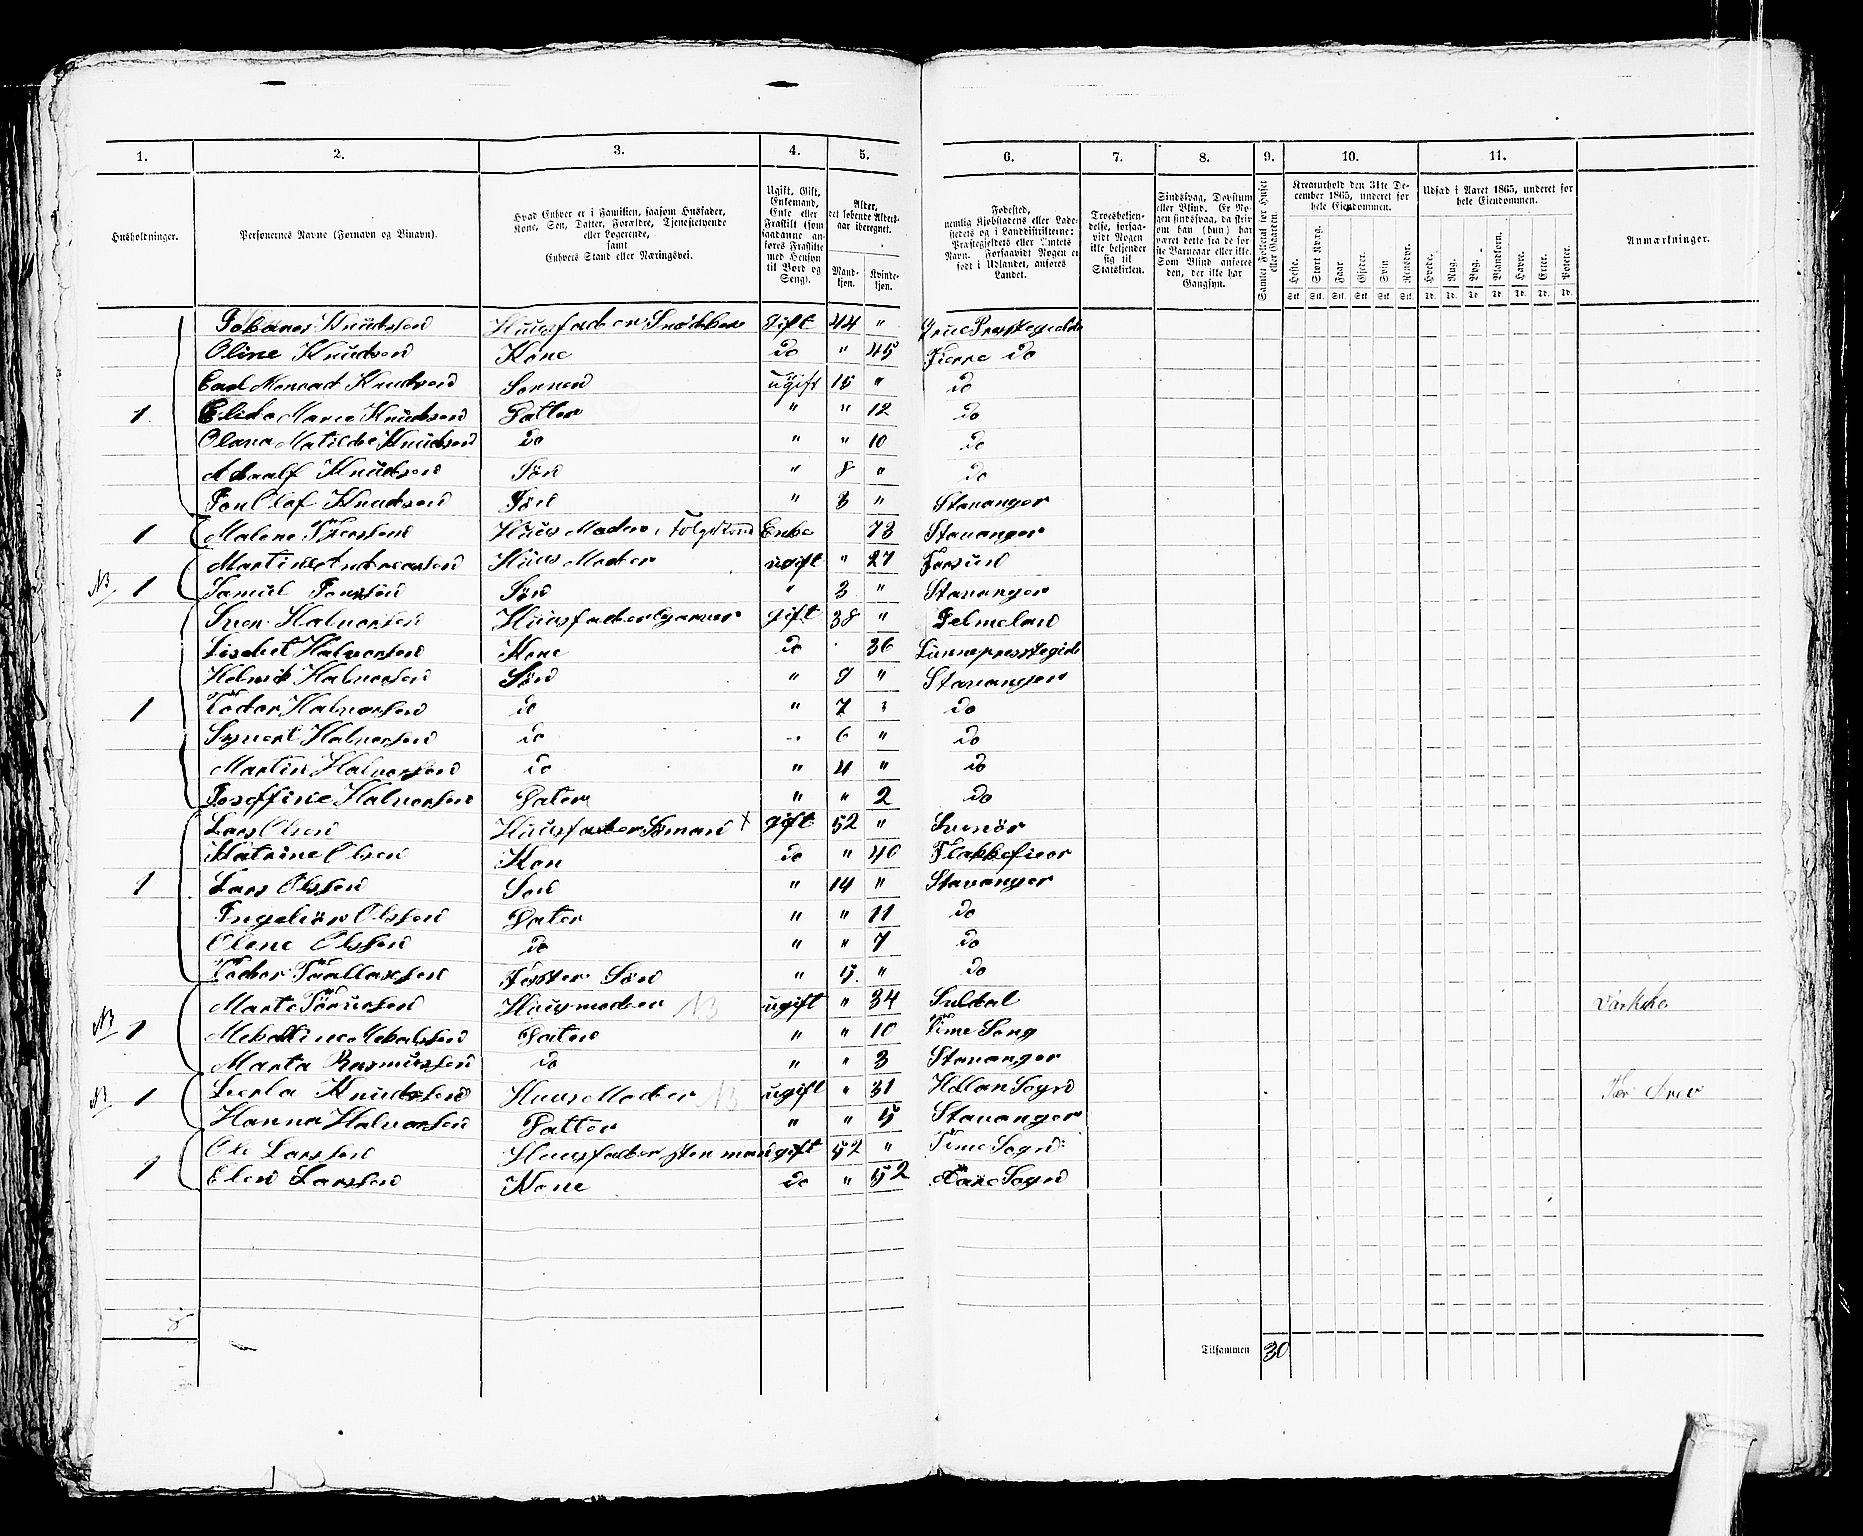 1. 2. 3. 4. 5. 6. 7. 8. 9. 10. 11.
Husholdninger.
Personernes Navne (Fornavn og Vinavn).
Hvad Enhver er i Familien, saasom Husfader, Kone, Søn, Datter, Forældre, Tjenestetyende eller Logerende, samt Enhvers Stand eller Næringsvei.
Ugift, Gift, Enkemand, Enke eller Fraskilt (som saadanne anføres Fraskilte med Hensyn til Bord og Seng).
Alder, det løbende Alders-aar iberegnet.
Mand-kjøn. Kvinde-kjøn.
Fødested, nemlig Kjøbstadens eller Ladestedets og i Landdistrikterne: Præstegjeldets eller Amtets Navn. Forsaavidt Nogen er født i Udlandet, anføres Landet.
Troesbekjendelse, forsaavidt Nogen ikke bekjender sig til Statskirken.
Sindssvag, Døvstum eller Blind. Er Nogen sindssvag, da skrives om han (hun) har været dette fra de første Barneaar eller ikke. Som Blind anføres den, der ikke har Gangsyn.
Samlet Folketal for Huset eller Gaarden.
Kreaturhold den 31te December 1865, underet for hele Eiendommen.
Heste. Stort Kvæg. Faar. Gjeder. Svin. Rensdyr.
Stk. Stk. Stk. Stk. Stk. Stk.
Udsæd i Aaret 1865, underet for hele Eiendommen.
Hvede. Rug. Byg. Blandkorn. Havre. Erter. Poteter.
Td. Td. Td. Td. Td. Td. Td.
Anmærkninger.
Johanes Knudsen Huusfader Snedker Gift 44 " Prestegjeld
Oline Knudsen Kone Do " 45 Do
Carl Monrad Knudsen Sønnen ugift 15 " Do
1 Elida Marie Knudsen Datter " " 12 Do
Olava Matilde Knudsen Do " " 10 Do
Adaalf Knudsen Søn " 8 " Do
Jon Olaf Knudsen Søn " 3 " Stavanger
1 Malene Huus Moder Enke 73 Stavanger
Martine Andreassen Huus Moder ugift " 27 Farsund
NB 1 Samuel Søn " 3 " Stavanger
Sven Halvorsen Huusfader Garver gift 38 " Telmeland
Lisebet Halvorsen Kone Do 36
Halvorsen Søn " 9 " Stavanger
1 Todor Halvorsen do " 7 " Do
Syvert Halvorsen do " 6 " Do
Martin Halvorsen do " 4 " Do
Joseffine Halvorsen Dater " " 2 Do
Lars Olsen Huusfader Sømand × gift 52 " Svinør
Katrine Olsen Kon do " 40 Flekkefieor
1 Lars Olssen Søn " 14 " Stavanger
Olssen Dater " " 11 Do
Olene Olssen Do " " 7 Do
Todor Foster Søn " 5 " Do
Marte Huusmoder NB ugift " 34 Suldal
NB 1 Dater " " 10 Time Song
Marta Rasmussen Do " " 3 Stavanger
NB 1 Berta Knudssen Huus Moder NB ugift " 31 Sogn
Hanna Halvorsen Datter " " 5 Stavanger
Ole Larssen Huusfader gift 52 " Time Sogn
1 Elen Larssen Kone do " 52 Sogn
Tilsammen 30